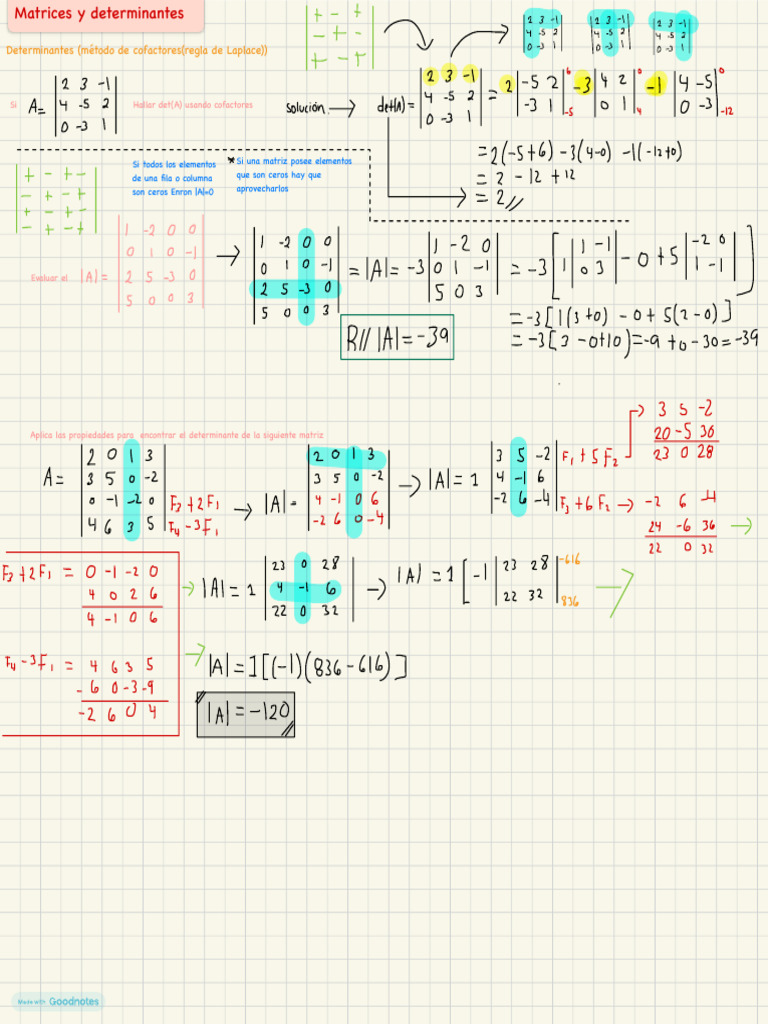 Matrices y determinantes
Determinantes (método de cofactores(regla de Laplace))
+ - +
- + -
+ - +
2 3 -1
4 -5 2
0 -3 1
2 3 -1
4 -5 2
0 -3 1
2 3 -1
4 -5 2
0 -3 1
Si A= |2 3 -1|
|4 -5 2|
|0 -3 1|
Hallar det(A) usando cofactores
solución → det(A) = |2 3 -1| = 2 |-5 2| 6 -3 |4 2| 0 -1 |4 -5| 0
|4 -5 2| |-3 1| -5 |0 1| 4 |0 -3| -12
|0 -3 1|
= 2(-5+6) -3(4-0) -1(-12+0)
= 2 - 12 + 12
= 2//
+ - + -
- + - +
+ - + -
- + - +
Si todos los elementos
de una fila o columna
son ceros Enron |A|=0
* Si una matriz posee elementos
que son ceros hay que
aprovecharlos
Evaluar el |A| = |1 -2 0 0|
|0 1 0 -1|
|2 5 -3 0|
|5 0 0 3|
→ |1 -2 0 0|
|0 1 0 -1|
|2 5 -3 0|
|5 0 0 3|
= |A| = -3 |1 -2 0|
|0 1 -1|
|5 0 3|
= -3 [ 1 |1 -1| - 0 + 5 |-2 0| ]
|0 3| |1 -1|
= -3[1(3+0) - 0 + 5(2-0)]
= -3[3 -0+10) = -9 + 0 -30 = -39
R// |A| = -39
Aplica las propiedades para encontrar el determinante de la siguiente matriz
A= |2 0 1 3|
|3 5 0 -2|
|0 -1 -2 0| F3+2F1
|4 6 3 5| F4-3F1
→ |A| = |2 0 1 3|
|3 5 0 -2|
|4 -1 0 6|
|-2 6 0 -4|
→ |A| = 1 |3 5 -2| F1+5F2
|4 -1 6|
|-2 6 -4| F3+6F2 →
3 5 -2
20 -5 30
23 0 28
-2 6 -4
24 -6 36
22 0 32
F3+2F1 = 0 -1 -2 0
4 0 2 6
4 -1 0 6
F4-3F1 = 4 6 3 5
- 6 0 -3 -9
-2 6 0 4
→ |A| = 1 |23 0 28|
|4 -1 6|
|22 0 32|
→ |A| = 1 [ -1 |23 28| -616
|22 32| 836
→ |A| = 1[(-1)(836-616)]
|A| = -120
Made with Goodnotes